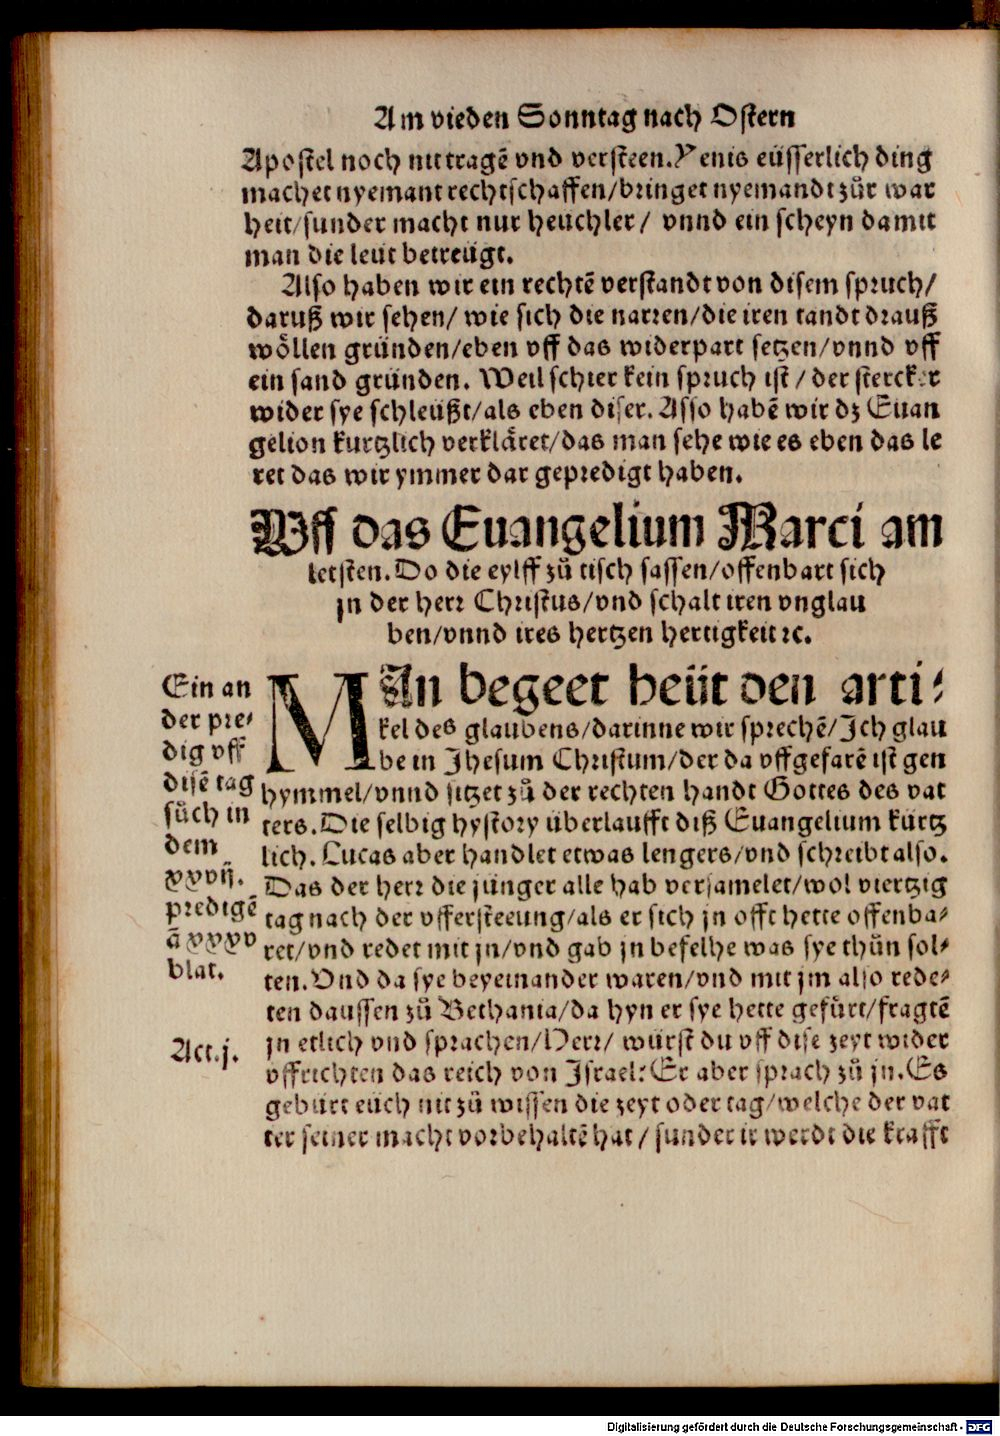 Am vieden Sonntag nach Ostern
Apostel noch nit tragē vnd versteen. Yenis eüsserlich ding
machet nyemant rechtschaffen/bringet nyemandt zůr war
heit/sunder macht nur heuchler/ vnnd ein scheyn damit
man die leüt betreügt.
Also haben wir ein rechtē verstandt von disem spruch/
daruß wir sehen/ wie sich die narren/die iren tandt drauß
wöllen gründen/eben vff das widerpart setzen/vnnd vff
ein sand gründen. Weil schier kein spruch ist / der stercker
wider sye schleüßt/als eben diser. Asso habē wir dz Euan
gelion kurtzlich verkläret/das man sehe wie es eben das le
ret das wir ymmer dar gepredigt haben.
Vff das Euangelium Marci am
letsten. Do die eylff zů tisch sassen/offenbart sich
jn der herr Christus/vnd schalt iren vnglau
ben/vnnd ires hertzen hertigkeit ⁊c.
Ein an
der pre⸗
dig vff
disē tag
sůch in
dem
xxvij.
predigē
ā xxxv
blat.
MAn begeet heüt den arti⸗
kel des glaubens/darinne wir sprechē/Ich glau
be in Jhesum Christum/der da vffgefarē ist gen
hymmel/vnnd sitzet zů der rechten handt Gottes des vat
ters. Die selbig hystory überlaufft diß Euangelium kürtz
lich. Lucas aber handlet etwas lengers/vnd schreibt also.
Das der herr die jünger alle hab versamelet/wol viertzig
tag nach der vffersteeung/als er sich jn offt hette offenba⸗
ret/vnd redet mit jn/vnd gab jn befelhe was sye thůn sol⸗
ten. Vnd da sye beyeinander waren/vnd mit jm also rede⸗
ten daussen zů Bethania/da hyn er sye hette gefürt/fragtē
Act.j.
jn etlich vnd sprachen/Herr/ würst du vff dise zeyt wider
vffrichten das reich von Israel: Er aber sprach zů jn. Es
gebürt euch nit zů wissen die zeyt oder tag/welche der vat
ter seiner macht vorbehaltē hat / sunder ir werdt die krafft
Digitalisierung gefördert durch die Deutsche Forschungsgemeinschaft - DFG